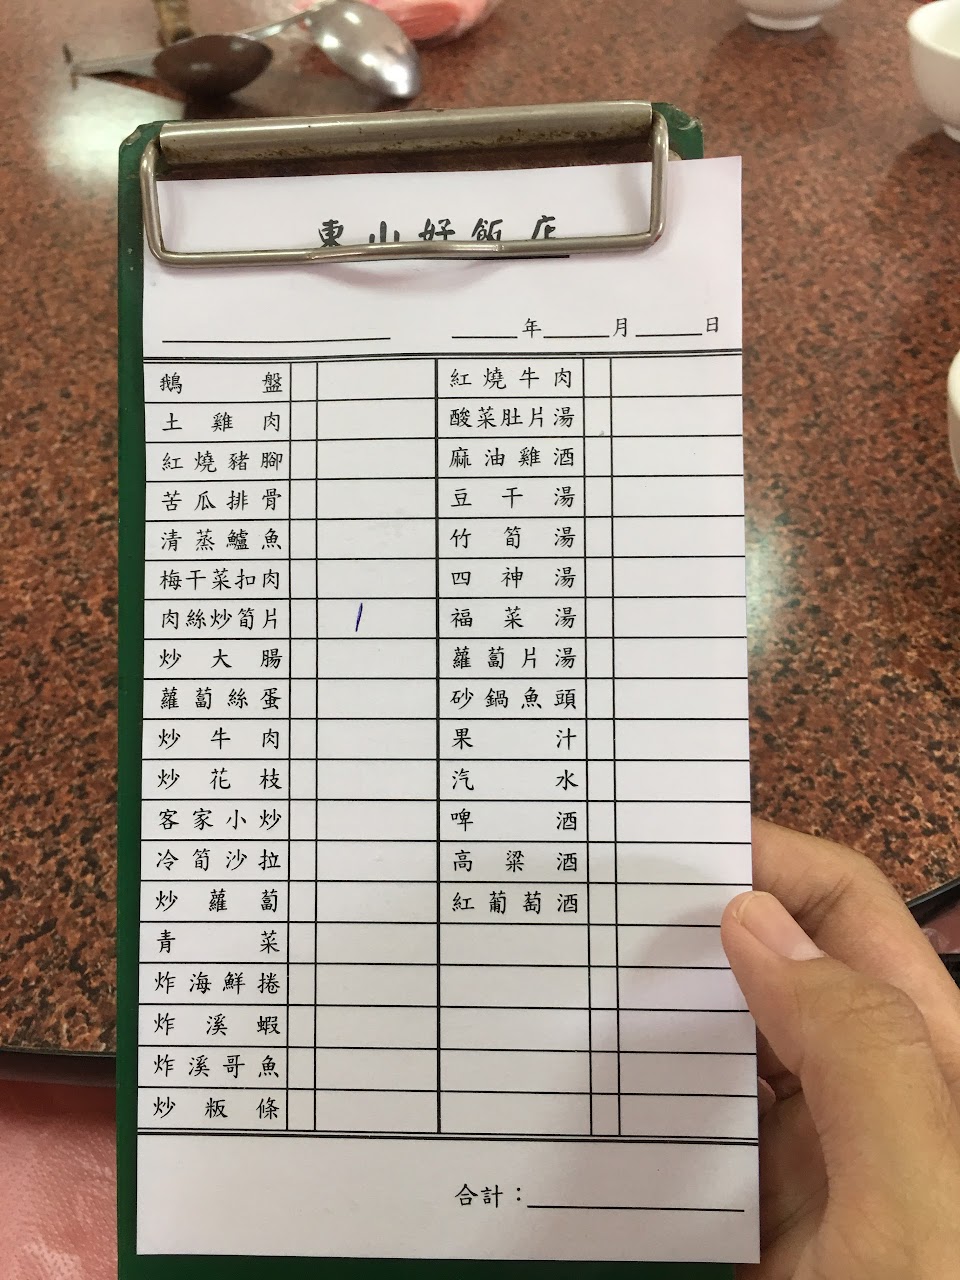 東山好飯店
年 月 日
鵝盤
土雞肉
紅燒豬腳
苦瓜排骨
清蒸鱸魚
梅干菜扣肉
肉絲炒筍片 /
炒大腸
蘿蔔絲蛋
炒牛肉
炒花枝
客家小炒
冷筍沙拉
炒蘿蔔
青菜
炸海鮮捲
炸溪蝦
炸溪哥魚
炒粄條
紅燒牛肉
酸菜肚片湯
麻油雞酒
豆干湯
竹筍湯
四神湯
福菜湯
蘿蔔片湯
砂鍋魚頭
果汁
汽水
啤酒
高粱酒
紅葡萄酒
合計：